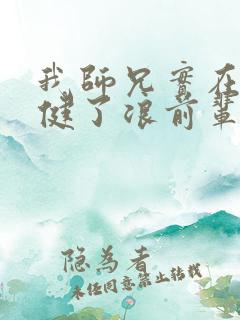 我師兄實在
健了浪前輩
隐為者
未经同意禁止转载